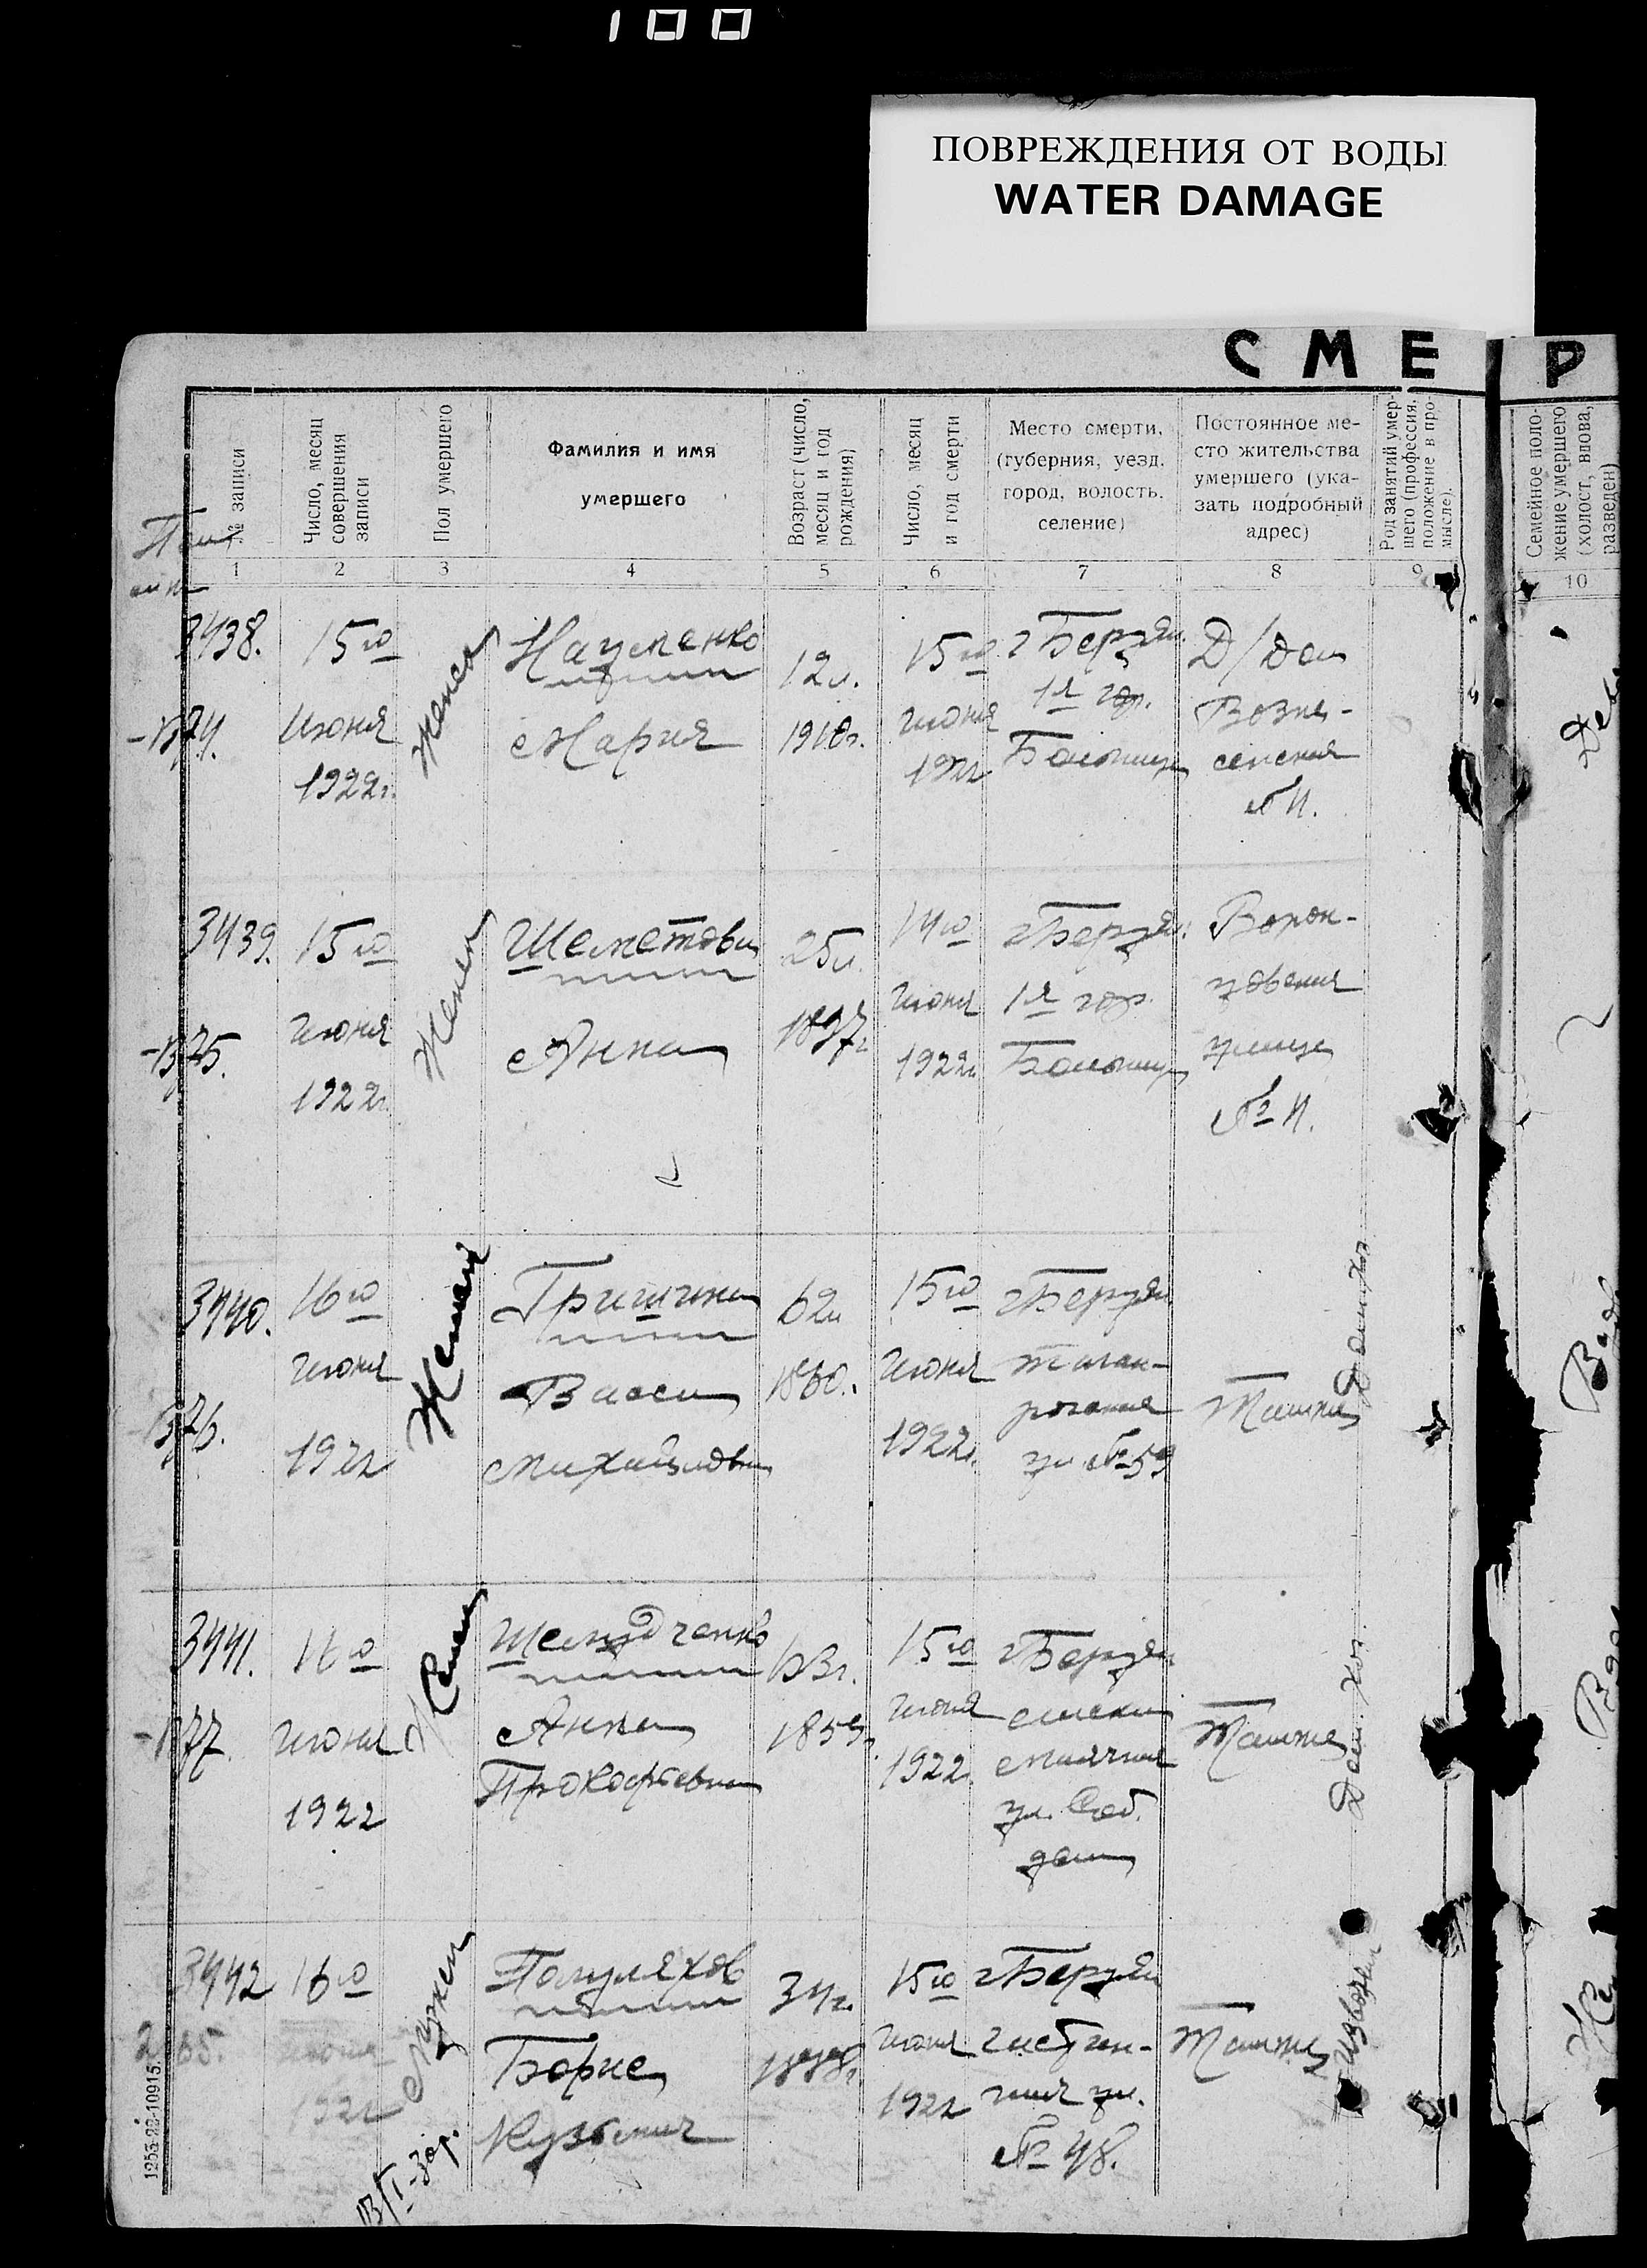 100
ПОВРЕЖДЕНИЯ ОТ ВОДЫ
WATER DAMAGE
СМЕР
№ записи
Число, месяц
совершения
записи
Пол умершего
Фамилия и имя
умершего
Возраст (число,
месяц и год
рождения)
Число, месяц
и год смерти
Место смерти,
(губерния, уезд,
город, волость,
селение)
Постоянное ме-
сто жительства
умершего (ука-
зать подробный
адрес)
Род занятий умер-
шего (профессия,
положение в про-
мысле).
Семейное поло-
жение умершего
(холост, вдова,
разведен)
1 2 3 4 5 6 7 8 9 10
3438.
15го
Июня
1922г.
Женск
Науменко
Мария
12л.
1910г.
15го
июня
1922
г Бердян.
1я гор.
Больниц
Д/дом
Возне-
сенская
№ 11.
3439.
15го
июня
1922г.
Женск
Шеметова
Анна
25л.
1897г
14го
июня
1922г
г Бердян.
1я гор.
Больниц
Ворон-
цовская
улица
№ 11.
3440.
16го
июня
1922
Женск
Гришина
Васса
Михайловна
62л
1860.
15го
июня
1922г.
г Бердян
таган-
рогская
ул. № 59
Также
Дом. хоз.
3441.
16го
июня
1922
Женск
Шелудченко
Анна
Прокофьевна
63г.
1859г.
15го
июня
1922г.
г Бердян
ул. Соб.
дом
Также
Дом. хоз.
3442
16го
июня
1922
Мужск
Полуляхов
Борис
Кузьмич
34г.
1888г.
15го
июня
1922
г Бердян
ул.
№ 48.
Также
Извозч
1253-22-10915.